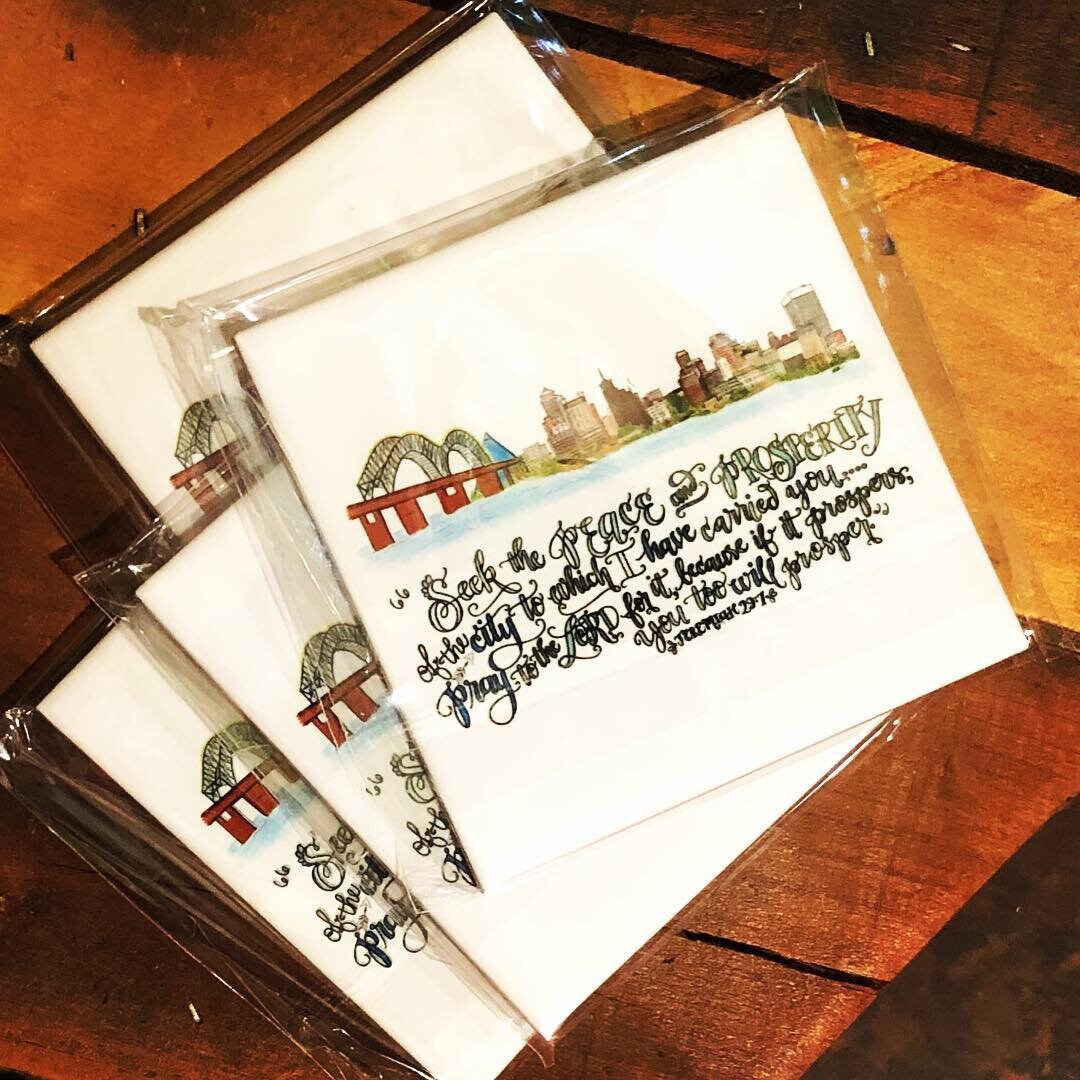 “Seek the PEACE and PROSPERITY
of the city to which I have carried you....
pray to the LORD for it, because if it prospers,
you too will prosper.”
JEREMIAH 29:7
“ See
of the cit
pray
“ S
of th
p